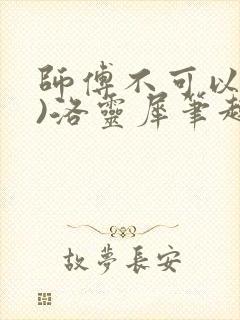 師傅不可以
)洛靈犀筆趣
故夢長安